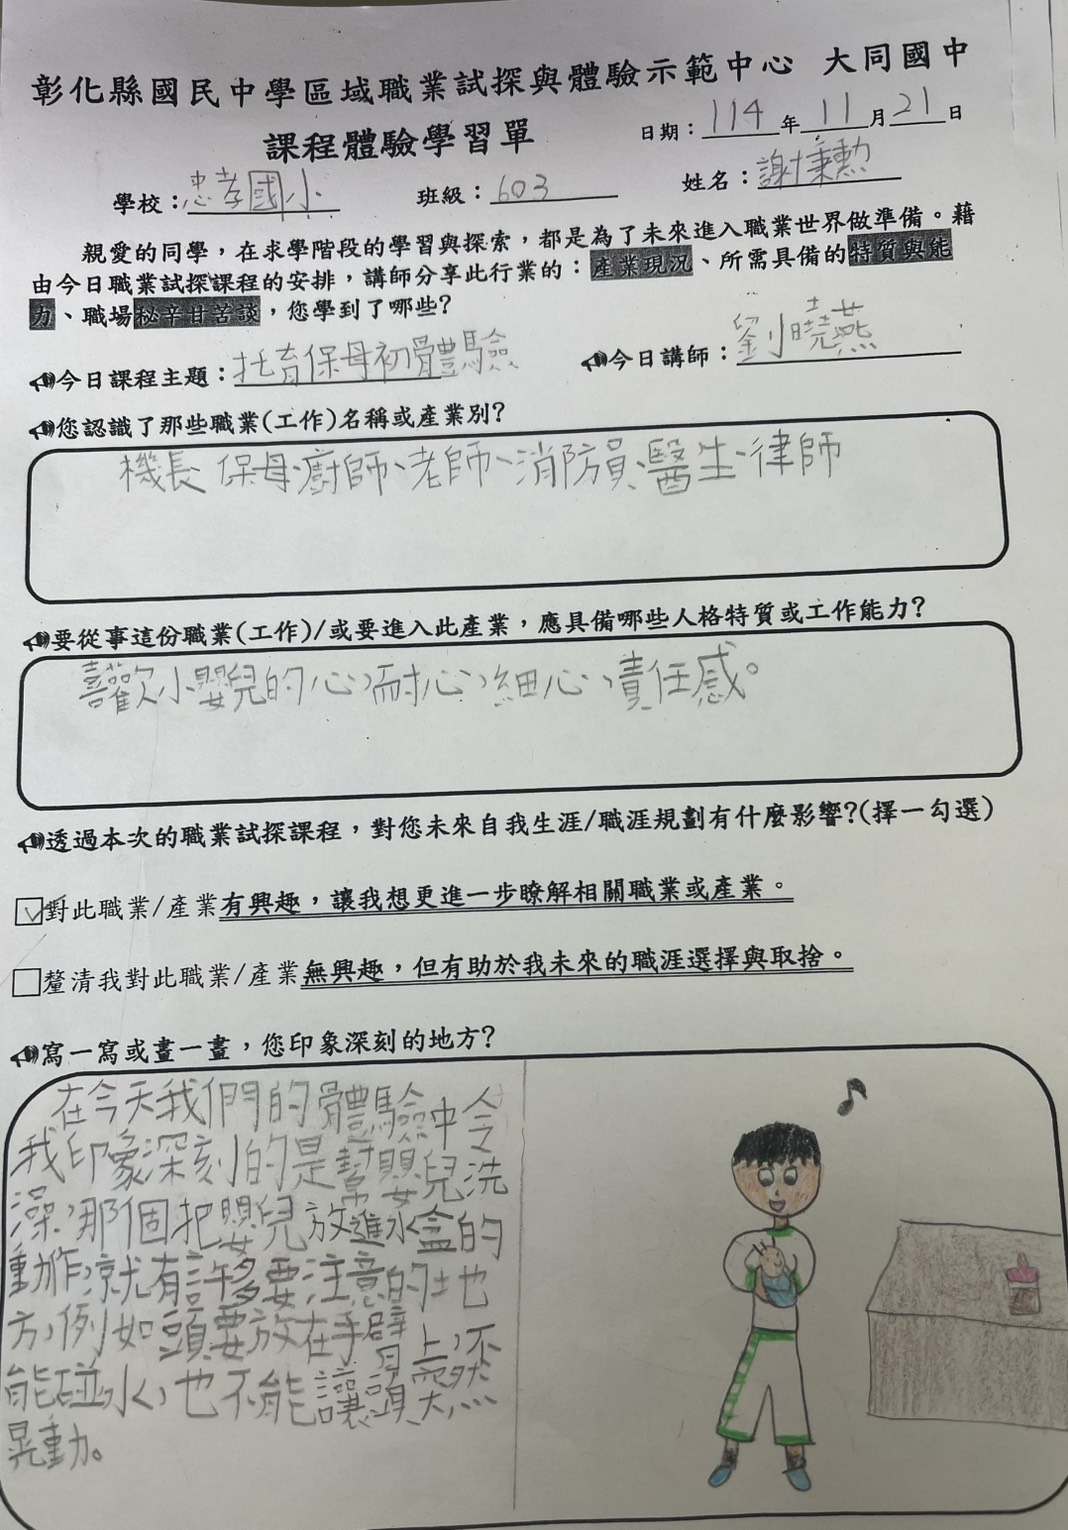 彰化縣國民中學區域職業試探與體驗示範中心 大同國中
課程體驗學習單
日期：114年11月21日
學校：忠孝國小 班級：603 姓名：謝秉勲
親愛的同學，在求學階段的學習與探索，都是為了未來進入職業世界做準備。藉
由今日職業試探課程的安排，講師分享此行業的：產業現況、所需具備的特質與能
力、職場秘辛甘苦談，您學到了哪些？
今日課程主題：托育保母初體驗 今日講師：劉曉燕
您認識了那些職業(工作)名稱或產業別？
機長 保母、廚師、老師、消防員、醫生、律師
要從事這份職業(工作)/或要進入此產業，應具備哪些人格特質或工作能力？
喜歡小嬰兒的心，耐心，細心，責任感。
透過本次的職業試探課程，對您未來自我生涯/職涯規劃有什麼影響?(擇一勾選)
對此職業/產業有興趣，讓我想更進一步瞭解相關職業或產業。
釐清我對此職業/產業無興趣，但有助於我未來的職涯選擇與取捨。
寫一寫或畫一畫，您印象深刻的地方？
在今天我們的體驗中令
我印象深刻的是幫嬰兒洗
澡，那個把嬰兒放進水盒的
動作，就有許多要注意的地
方，例如頭要放在手臂上，不
能碰水，也不能讓頭突然
晃動。